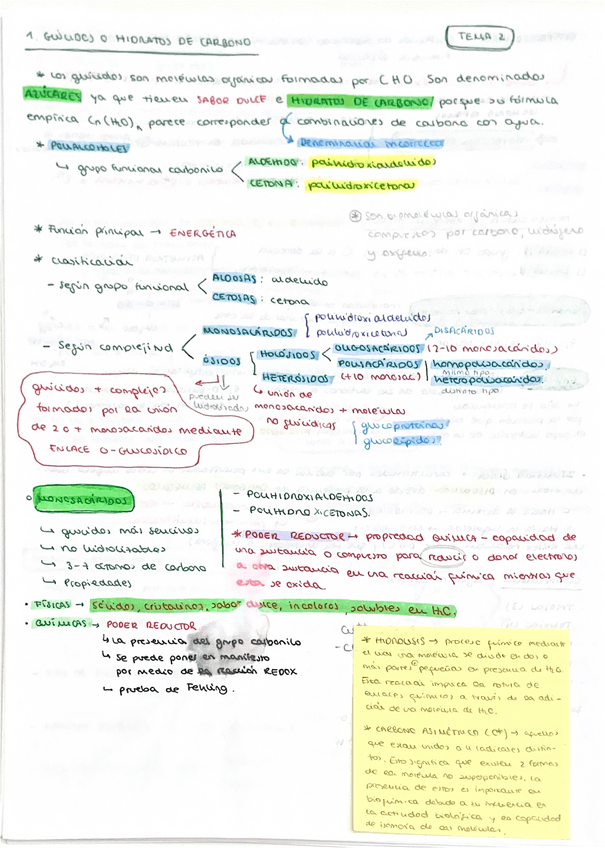 1. GLÚCIDOS O HIDRATOS DE CARBONO
TEMA 2
* Los glúcidos son moléculas orgánicas formadas por CHO. Son denominados
AZÚCARES ya que tienen SABOR DULCE e HIDRATOS DE CARBONO porque su fórmula
empírica Cn(H2O)n parece corresponder a combinaciones de carbono con agua.
Denominación incorrecta
* POLIALCOHOLES
↳ grupo funcional carbonilo
ALDEHIDO: polihidroxialdehido
CETONA: polihidroxicetona
* Son biomoléculas orgánicas
compuestas por carbono, hidrógeno
y oxígeno.
* Función principal → ENERGÉTICA
* Clasificación
- Según grupo funcional
ALDOSAS: aldehido
CETOSAS: cetona
- Según complejidad
MONOSACÁRIDOS
polihidroxialdehidos
polihidroxicetonas
ÓSIDOS
HOLÓSIDOS
DISACÁRIDOS
OLIGOSACÁRIDOS (2-10 monosacáridos)
POLISACÁRIDOS
(+10 monosac)
homopolisacáridos
mismo tipo
heteropolisacáridos
distinto tipo
HETERÓSIDOS
↳ unión de
monosacáridos + molécula
no glucídicas
glucoproteínas
glucolípidos
pueden ser
hidrolizados
glúcidos + complejos
formados por la unión
de 2 o + monosacáridos mediante
ENLACE O-GLUCOSÍDICO
MONOSACÁRIDOS
↳ glúcidos más sencillos
↳ no hidrolizables
↳ 3-7 átomos de carbono
↳ Propiedades
- POLIHIDROXIALDEHIDOS
- POLIHIDROXICETONAS.
* PODER REDUCTOR → propiedad química - capacidad de
una sustancia o compuesto para reducir o donar electrones
a otra sustancia en una reacción química mientras que
esta se oxida.
• FÍSICAS → Sólidos, cristalinos, sabor dulce, incoloros, solubles en H2O.
• QUÍMICAS → PODER REDUCTOR
↳ La presencia del grupo carbonilo
↳ Se puede poner en manifiesto
por medio de la reacción REDOX
↳ prueba de Fehling.
* HIDRÓLISIS → proceso químico mediante
el cual una molécula se divide en dos o
más partes pequeñas en presencia de H2O.
Esta reacción implica la rotura de
enlaces químicos a través de la adi-
ción de una molécula de H2O.
* CARBONO ASIMÉTRICO (C*) → aquellos
que están unidos a 4 radicales distin-
tos. Esto significa que existen 2 formas
de la molécula no superponibles. La
presencia de estos es importante en
bioquímica debido a su influencia en
la actividad biológica y la capacidad
de isomería de las moléculas.